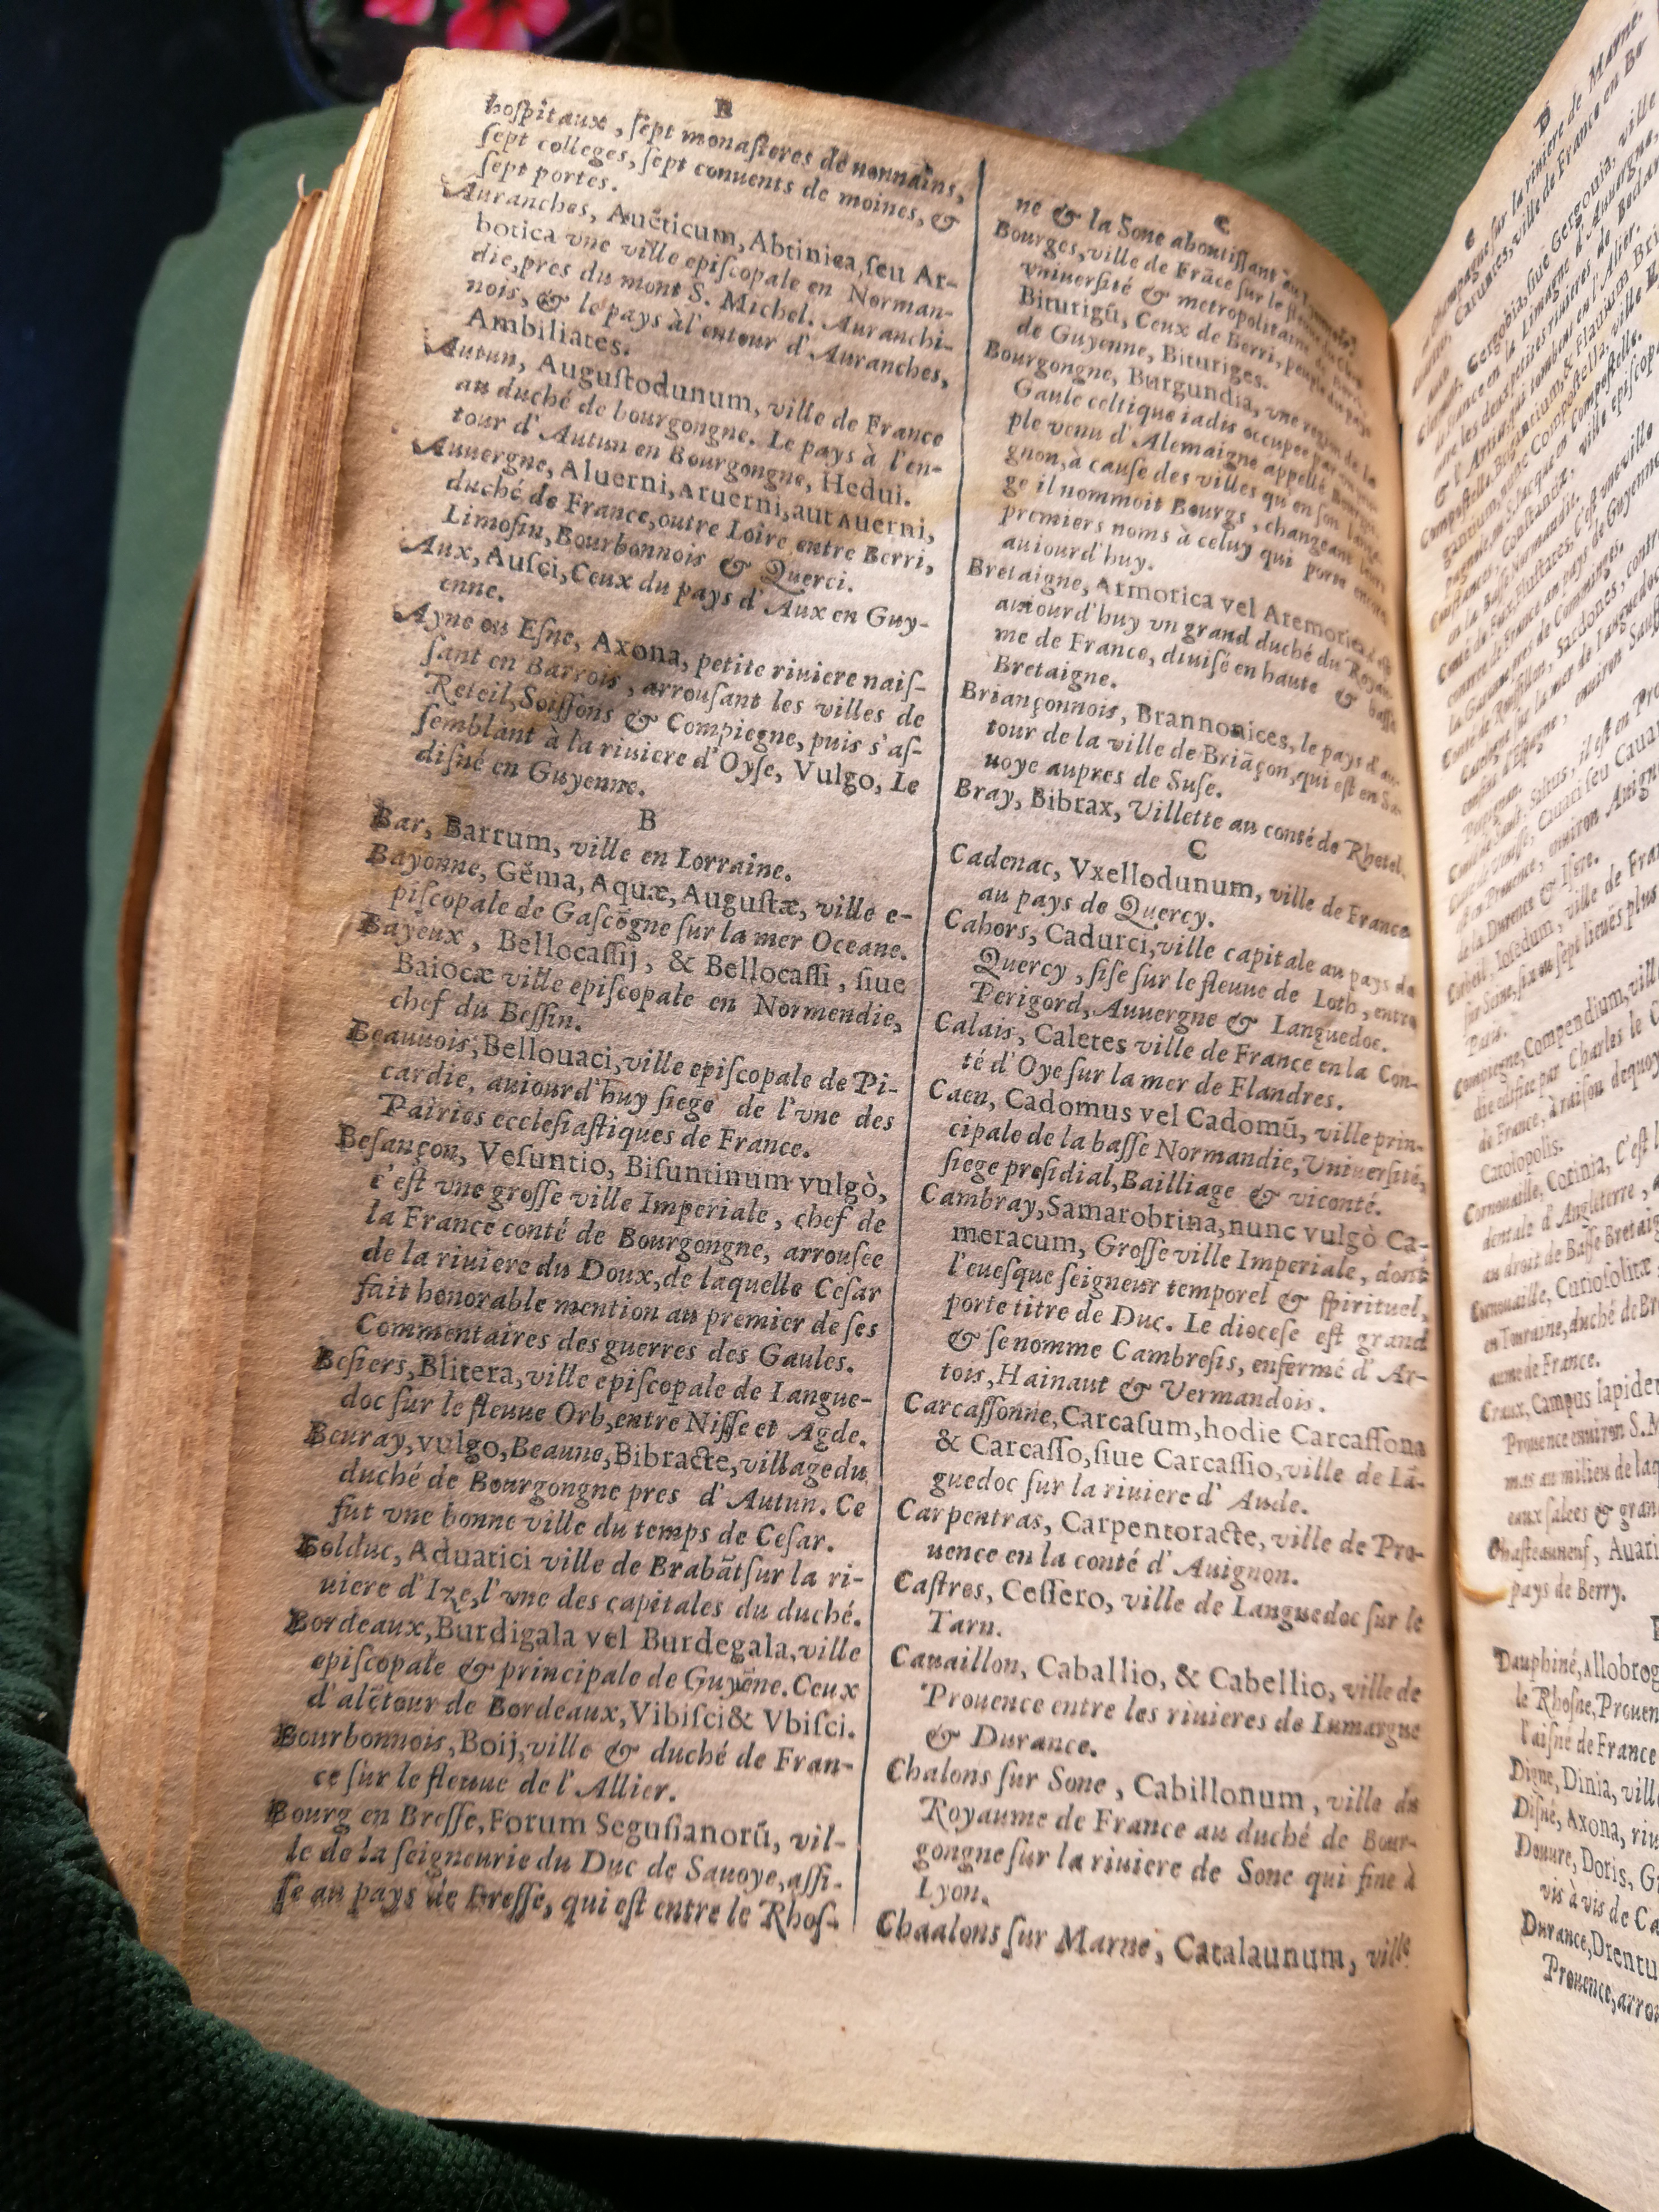 B
hoſpitaux, ſept monaſteres de nonnains,
ſept colleges, ſept conuents de moines, &
ſept portes.
Auranches, Aucticum, Abtinica, ſeu Ar-
botica vne ville epiſcopale en Norman-
die, pres du mont S. Michel. Auranchi-
nois, & le pays à l'entour d'Auranches,
Ambiliates.
Autun, Auguſtodunum, ville de France
au duché de bourgongne. Le pays à l'en-
tour d'Autun en Bourgongne, Hedui.
Auuergne, Aluerni, Aruerni, aut Auerni,
duché de France, outre Loire entre Berri,
Limoſin, Bourbonnois & Querci.
Aux, Auſci, Ceux du pays d'Aux en Guy-
enne.
Ayne ou Eſne, Axona, petite riuiere naiſ-
ſant en Barrois, arrouſant les villes de
Reteil, Soiſſons & Compiegne, puis s'aſ-
ſemblant à la riuiere d'Oyſe, Vulgo, Le
diſné en Guyenne.
B
Bar, Barrum, ville en Lorraine.
Bayonne, Gẽma, Aquæ, Auguſtæ, ville e-
piſcopale de Gaſcõgne ſur la mer Oceane.
Bayeux, Bellocaſſij, & Bellocaſſi, ſiue
Baiocæ ville epiſcopale en Normendie,
chef du Beſſin.
Beauuois, Bellouaci, ville epiſcopale de Pi-
cardie, auiourd'huy ſiege de l'vne des
Pairies eccleſiaſtiques de France.
Beſançon, Veſuntio, Biſuntinum vulgò,
c'eſt vne groſſe ville Imperiale, chef de
la France conté de Bourgongne, arrouſee
de la riuiere du Doux, de laquelle Ceſar
fait honorable mention au premier de ſes
Commentaires des guerres des Gaules.
Beſiers, Blitera, ville epiſcopale de Langue-
doc ſur le fleuue Orb, entre Niſſe et Agde.
Beuray, vulgo, Beaune, Bibracte, village du
duché de Bourgongne pres d'Autun. Ce
fut vne bonne ville du temps de Ceſar.
Bolduc, Aduatici ville de Brabãt ſur la ri-
uiere d'Ize, l'vne des capitales du duché.
Bordeaux, Burdigala vel Burdegala, ville
epiſcopale & principale de Guyẽne. Ceux
d'alẽtour de Bordeaux, Vibiſci & Vbiſci.
Bourbonnois, Boij, ville & duché de Fran-
ce ſur le fleuue de l'Allier.
Bourg en Breſſe, Forum Seguſianorũ, vil-
le de la ſeigneurie du Duc de Sauoye, aſſi-
ſe au pays de Breſſe, qui eſt entre le Rhoſ-
C
ne & la Sone aboutiſſant au
Bourges, ville de Frãce ſur le
vniuerſité & metropolitaine
Biturigũ, Ceux de Berri, peuple du pays
de Guyenne, Bituriges.
Bourgongne, Burgundia, vne region de la
Gaule celtique iadis occupee par vn peu-
ple venu d'Alemaigne appellé
gnon, à cauſe des villes qu'en ſon langa-
ge il nommoit Bourgs, changeant leurs
premiers noms à celuy qui porte encore
auiourd'huy.
Bretaigne, Armorica vel Aremorica,
auiourd'huy vn grand duché du Royau-
me de France, diuiſé en haute & baſſe
Bretaigne.
Briançonnois, Brannonices, le pays d'au-
tour de la ville de Briãçon, qui eſt en Sa-
uoye aupres de Suſe.
Bray, Bibrax, Villette au conté de Rhetel.
C
Cadenac, Vxellodunum, ville de France
au pays de Quercy.
Cahors, Cadurci, ville capitale au pays de
Quercy, ſiſe ſur le fleuue de Loth, entre
Perigord, Auuergne & Languedoc.
Calais, Caletes ville de France en la Con-
té d'Oye ſur la mer de Flandres.
Caen, Cadomus vel Cadomũ, ville prin-
cipale de la baſſe Normandie, Vniuerſité,
ſiege preſidial, Bailliage & viconté.
Cambray, Samarobrina, nunc vulgò Ca-
meracum, Groſſe ville Imperiale, dont
l'eueſque ſeigneur temporel & ſpirituel,
porte titre de Duc. Le dioceſe eſt grand
& ſe nomme Cambreſis, enfermé d'Ar-
tois, Hainaut & Vermandois.
Carcaſſonne, Carcaſum, hodie Carcaſſona
& Carcaſſo, ſiue Carcaſſio, ville de Lã-
guedoc ſur la riuiere d'Aude.
Carpentras, Carpentoracte, ville de Pro-
uence en la conté d'Auignon.
Caſtres, Ceſſero, ville de Languedoc ſur le
Tarn.
Cauaillon, Caballio, & Cabellio, ville de
Prouence entre les riuieres de Lumargue
& Durance.
Chalons ſur Sone, Cabillonum, ville du
Royaume de France au duché de Bour-
gongne ſur la riuiere de Sone qui fine à
Lyon.
Chaalons ſur Marne, Catalaunum, ville
Compiegne, Compendium, vill
die edifiee par Charles le
de France, à raiſon dequoy
Carolopolis.
Cornouaille, Corinia, C'eſt
dentale d'Angleterre,
au droit de Baſſe Bretaig
Cornouaille, Curioſolitæ
en Touraine, duché de Br
aume de France.
Craux, Campus lapide
Prouence enuiron S. M
mas au milieu de laq
eaux ſalees & gran
Chaſteauneuf, Auari
pays de Berry.
Dauphiné, Allobrog
le Rhoſne, Prouen
l'aiſné de France
Digne, Dinia, vill
Diſné, Axona, riu
Douure, Doris, G
vis à vis de Ca
Durance, Drentu
Prouence, arro